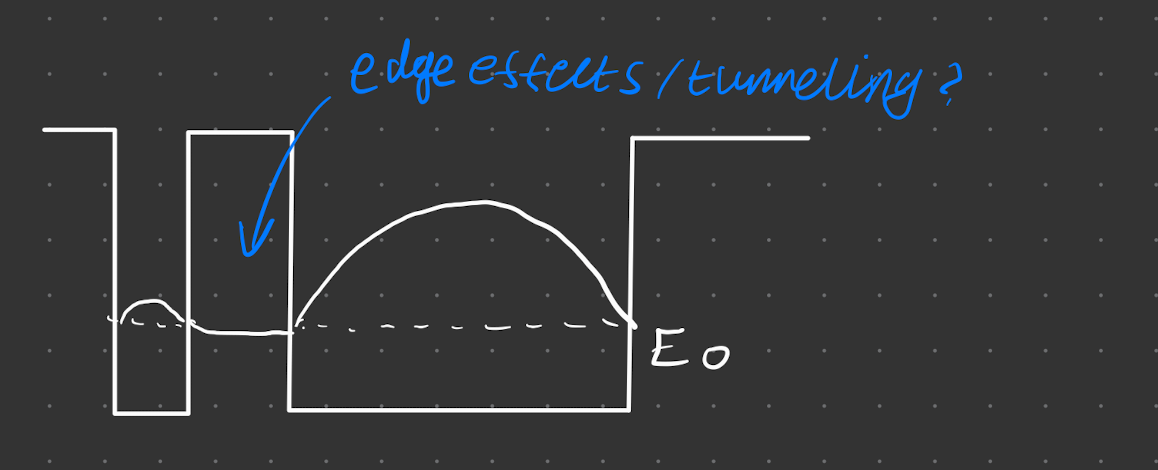 edge effects/tunneling?
E0